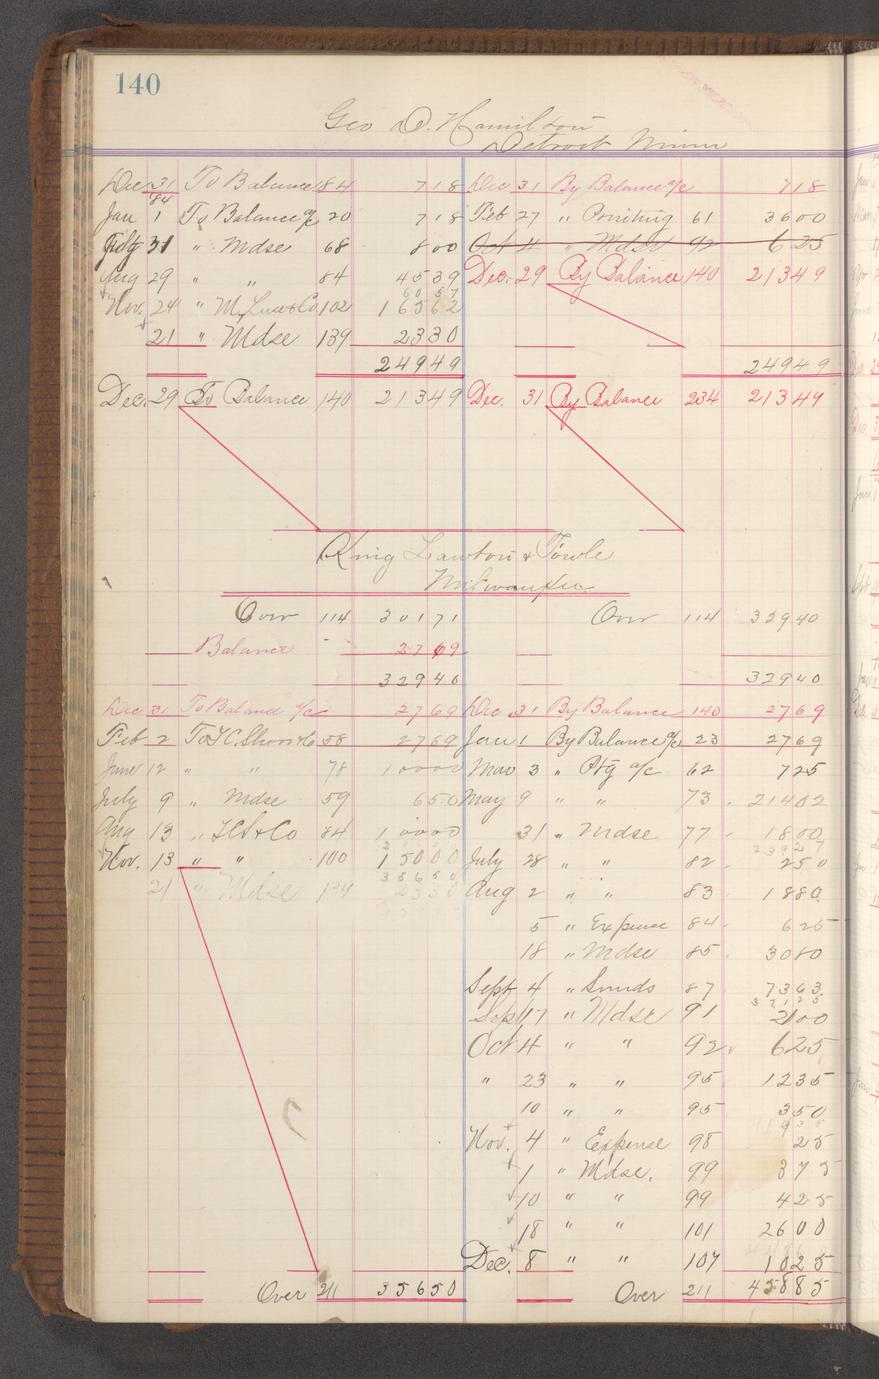 140
Geo D. Hamilton
Detroit Minn
Dec 31 To Balance 84 718 Dec 31 By Balance a/c 718
'84
Jan 1 To Balance a/c 20 718 Feb 27 " Printing 61 3600
July 31 " Mdse 68 800 Oct 4 " Mdse 92 625
Aug 29 " " 84 4539 Dec. 29 By Balance 140 21349
6057
Nov. 24 " & Co 102 16562
21 " Mdse 139 2330
24949 24949
Dec. 29 To Balance 140 21349 Dec. 31 By Balance 234 21349
King Lawton & Fowle
Milwaukee
Over 114 30171 Over 114 32940
Balance 2769
32940 32940
Dec 31 To Balance a/c 2769 Dec 31 By Balance 140 2769
Feb 2 To 58 2769 Jan 1 By Balance a/c 23 2769
June 12 " " 78 10000 Mar 3 " Ptg a/c 62 725
July 9 " Mdse 59 650 May 9 " " 73 21402
Aug 13 " & Co 84 10000 31 " Mdse 77 1800
23927
Nov. 13 " " 100 15000 July 28 " " 82 250
35650
21 " Mdse 139 2330 Aug 2 " " 83 1880
5 " Expense 84 625
18 " Mdse 85 3080
Sept 4 " Sunds 87 7363
37125
Sept 17 " Mdse 91 2100
Oct 4 " " 92 625
" 23 " " 95 1235
10 " " 95 350
Nov. 4 " Expense 98 25
1 " Mdse. 99 375
10 " " 99 425
18 " " 101 2600
Dec. 8 " " 107 1025
Over 211 35650 Over 211 45885